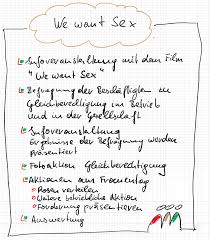 We want Sex
Infoveranstaltung mit dem Film
"We want Sex"
Befragung der Beschäftigten zu
Gleichberechtigung im Betrieb
und in der Gesellschaft
Infoveranstaltung
Ergebnisse der Befragung werden
präsentiert
Fotoaktion Gleichberechtigung
Aktionen am Frauentag
Rosen verteilen
betriebliche Aktion
Forderung präsentieren
Auswertung